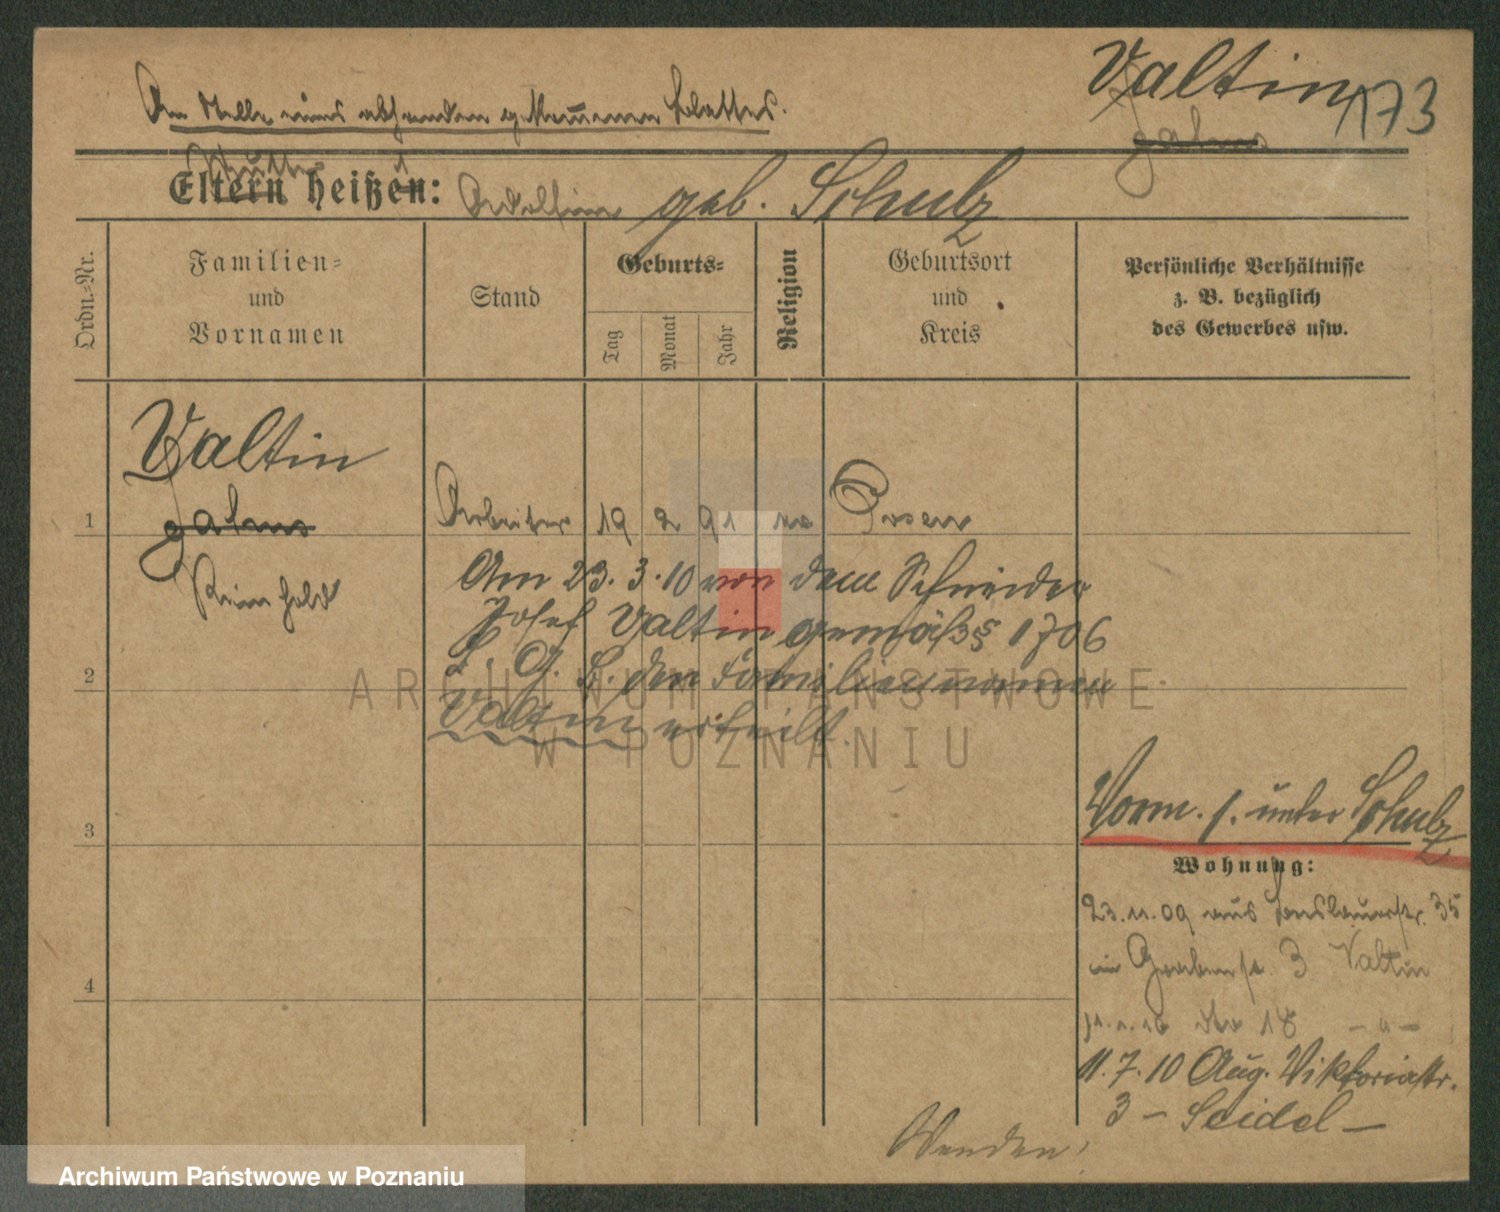 An Stelle eines abhanden gekommenen Blattes.
Valtin
173
Mutter
Eltern heißen:
geb. Schulz
Ordn.-Nr.
Familien-
und
Vornamen
Stand
Geburts-
Tag
Monat
Jahr
Religion
Geburtsort
und
Kreis
Persönliche Verhältnisse
z. B. bezüglich
des Gewerbes usw.
Valtin
1
Reinhold
Arbeiter 19 2 91 Posen
Am 23. 3. 10 von dem Schneider
Josef Valtin gemäß § 1706
B. G. B. den Familiennamen
Valtin erteilt.
2
3
4
Vorm. s. unter Schulz
Wohnung:
23.11.09 aus 35
in Grabenstr. 3 Valtin
18 - " -
11. 7. 10 Aug. Viktoriastr.
3 – Seidel –
Wenden!
ARCHIWUM PAŃSTWOWE
W POZNANIU
Archiwum Państwowe w Poznaniu